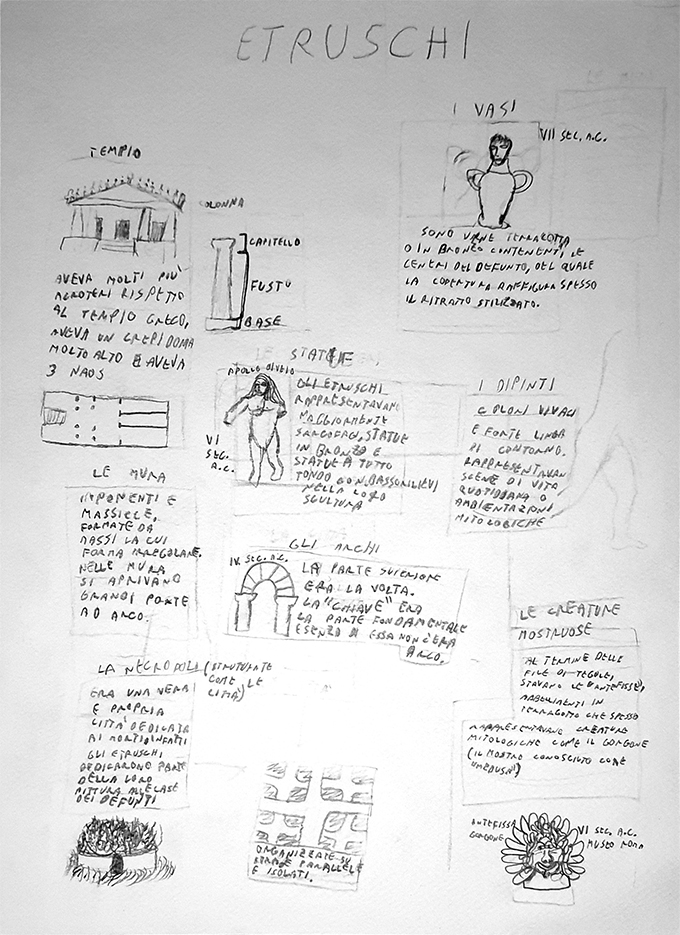 ETRUSCHI
I VASI
VII SEC. A.C.
SONO URNE TERRACOTTA
O IN BRONZO CONTENENTI, LE
CENERI DEL DEFUNTO, DEL QUALE
LA COPERTURA RAFFIGURA SPESSO
IL RITRATTO STILIZZATO.
TEMPIO
AVEVA MOLTI PIÙ
ACROTERI RISPETTO
AL TEMPIO GRECO,
AVEVA UN CREPIDOMA
MOLTO ALTO E AVEVA
3 NAOS
COLONNA
CAPITELLO
FUSTO
BASE
LE STATUE
APOLLO DI VEIO
VI
SEC.
A.C.
GLI ETRUSCHI
RAPPRESENTAVANO
MAGGIORMENTE
SARCOFAGI, STATUE
IN BRONZO E
STATUE A TUTTO
TONDO CON BASSORILIEVI
NELLA LORO
SCULTURA
I DIPINTI
COLORI VIVACI
E FORTE LINEA
DI CONTORNO.
RAPPRESENTAVAN
SCENE DI VITA
QUOTIDIANA O
AMBIENTAZIONI
MITOLOGICHE
LE MURA
IMPONENTI E
MASSICCE,
FORMATE DA
MASSI LA CUI
FORMA IRREGOLARE.
NELLE MURA
SI APRIVANO
GRANDI PORTE
AD ARCO.
GLI ARCHI
IV SEC. A.C.
LA PARTE SUPERIORE
ERA LA VOLTA.
LA "CHIAVE" ERA
LA PARTE FONDAMENTALE
E SENZA DI ESSA NON C'ERA
ARCO.
LE CREATURE
MOSTRUOSE
AL TERMINE DELLE
FILE DI TEGOLE,
STAVANO LE ANTEFISSE,
ABBELLIMENTI IN
TERRACOTTO CHE SPESSO
RAPPRESENTAVANO CREATURE
MITOLOGICHE COME IL GORGONE
(IL MOSTRO CONOSCIUTO COME
ANTEFISSA
GORGONE
VI SEC. A.C.
MUSEO ROMA
LA NECROPOLI (STRUTURATE
COME LE
CITTÀ)
ERA UNA VERA
E PROPRIA
CITTÀ DEDICATA
AI MORTI INFATTI
GLI ETRUSCHI
DEDICARONO PARTE
DELLA LORO
PITTURA ALLE CASE
DEI DEFUNTI
ORGANIZZATE SU
STRADE PARALLELE
E ISOLATI.